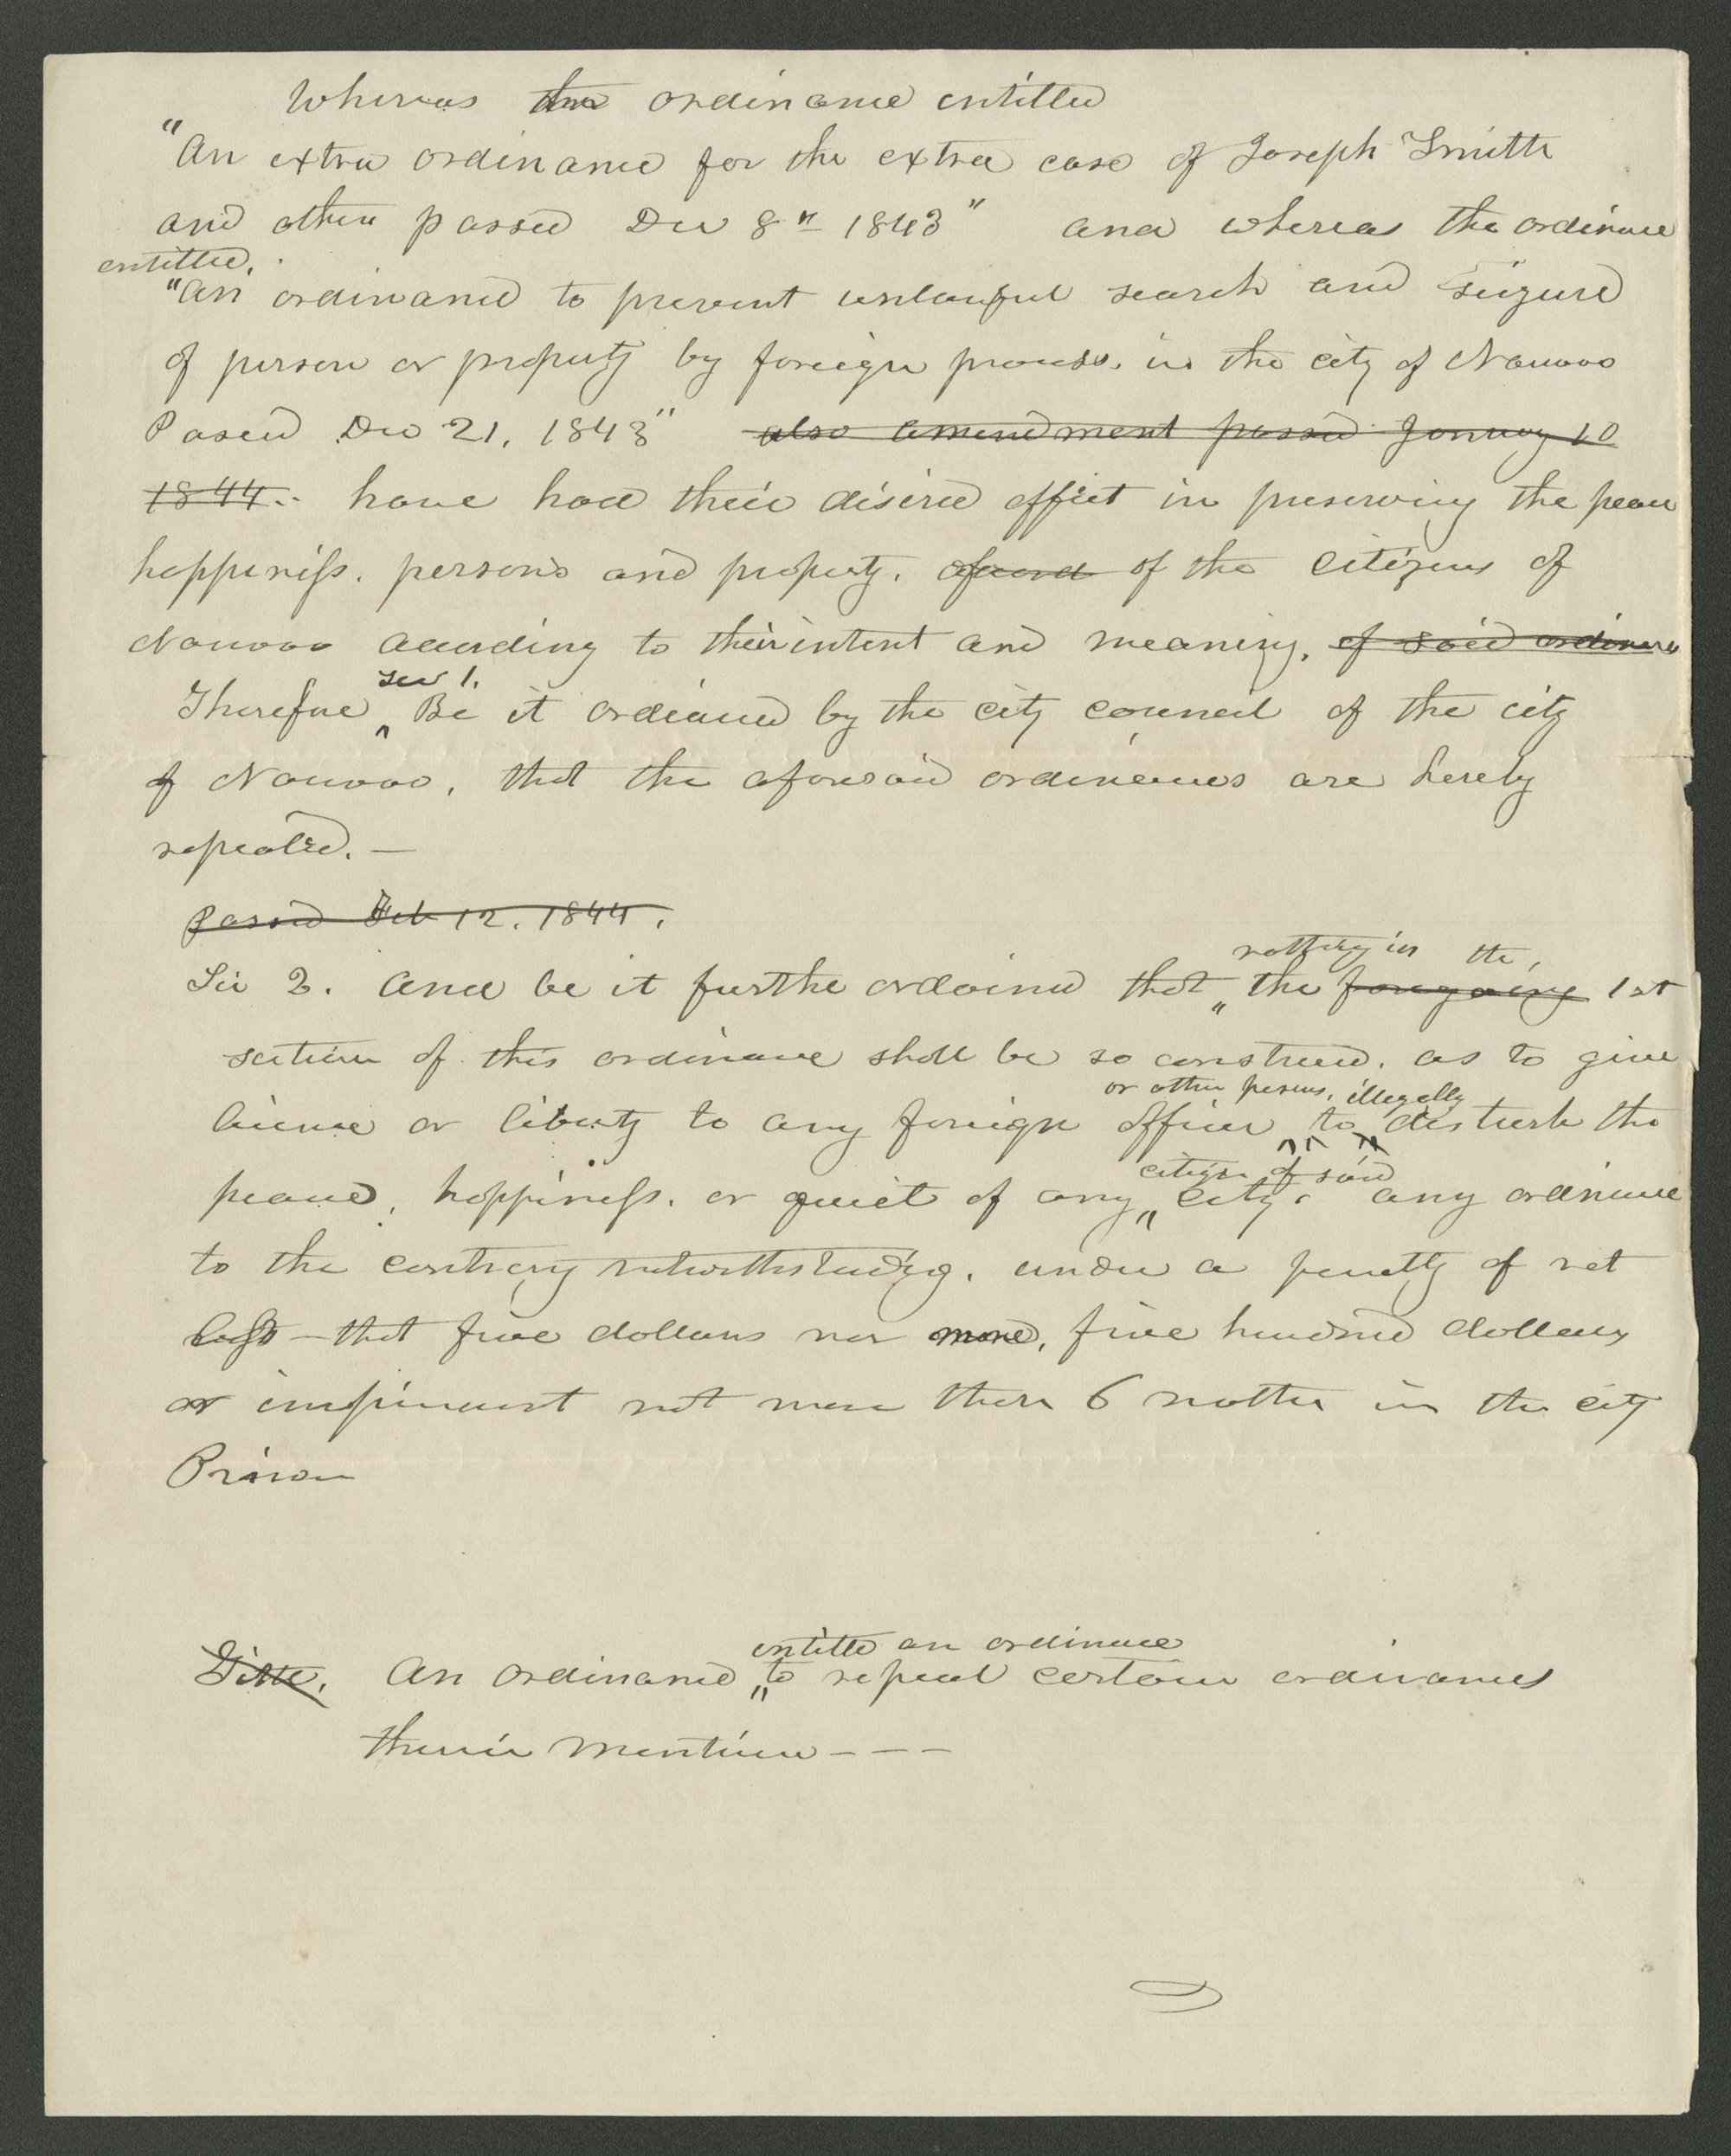 Whereas the ordinance entitled
"An extra ordinance for the extra case of Joseph Smith
and others passed Dec 8th 1843" and whereas the ordinance
entitled.
"An ordinance to prevent unlawful search and seizure
of person or property by foreign process. in the city of Nauvoo
Passed Dec 21, 1843" also amendment passed January 10
1844.. have had their desired effect in preserving the peace
happiness. persons and property. of the citizens of
Nauvoo according to their intent and meaning, of said ordinances
sec 1.
Therefore Be it ordained by the city council of the city
of Nauvoo, that the aforesaid ordinances are hereby
repealed. —
passed Feb 12. 1844.
nothing in the,
Sec 2. And be it further ordained that the foregoing 1st
section of this ordinance shall be so construed. as to give
or other persons, illegally
license or liberty to any foreign officer to disturb the
citizen of said
peace, happiness. or quiet of any city. any ordinance
to the contrary notwithstanding. under a penalty of not
less – that five dollars nor more, five hundred dollars
or imprisonment not more then 6 months in the city
Prison
entitled an ordinance
Title. An Ordinance to repeal certain ordinances
therein mentioned - - -